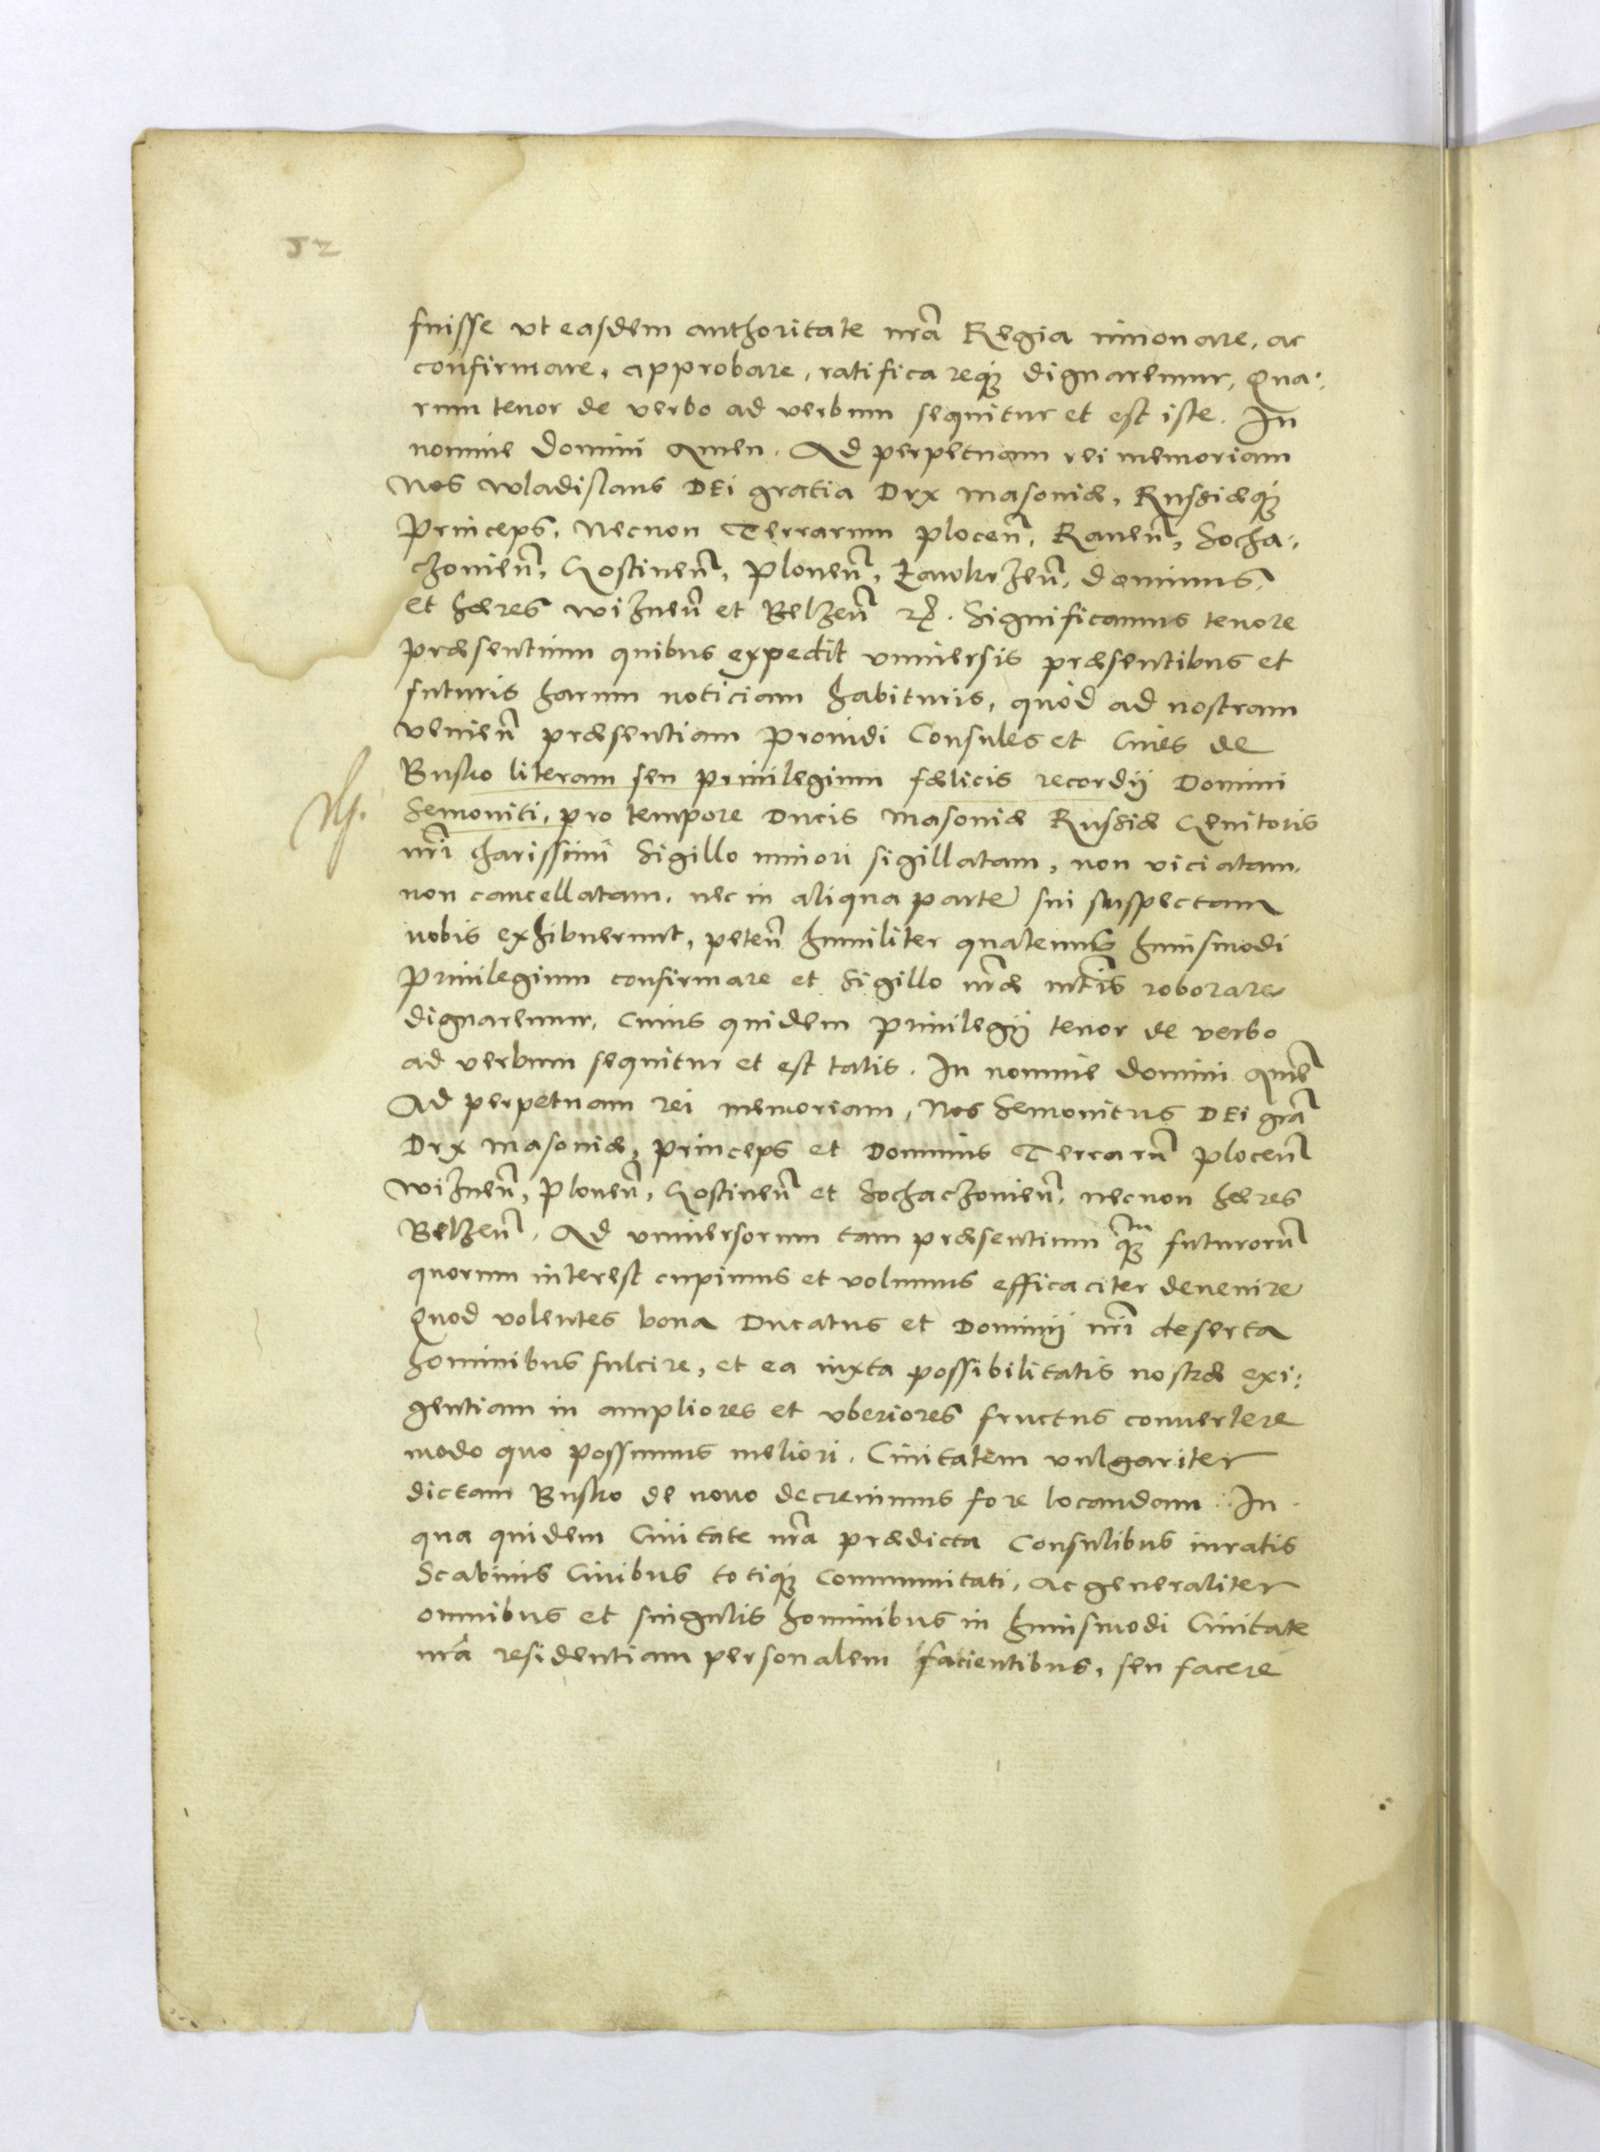 52
fuisse vt easdem authoritate nr̃a Regia innouare, ac
confirmare, approbare, ratificareq́ꝫ dignaremur, Qua:
rum tenor de verbo ad verbum sequitur et est iste. In
nomine Domini Amen. Ad perpetuam rei memoriam
Nos Wladislaus DEi gratia Dux Masoviæ, Russiæq́ꝫ
Princeps, Necnon Terrarum Plocen̄, Raven̄, Socha,
czovien̄, Gostinen̄, Plonen̄, Zawkrzen̄, Dominus,
et hæres Wiznen̄ et Belzen̄ ꝛc̃. Significamus tenore
præsentium quibus expedit vniuersis præsentibus et
futuris harum noticiam habituris, quòd ad nostram
venien̄ præsentiam Prouidi Consules et Ciues de
Busko literam seu priuilegium fælicis recordij Domini
Semouiti, pro tempore Ducis Masoviæ Russiæ Genitoris
nr̃i charissimi Sigillo minori sigillatam, non viciatam,
non cancellatam, nec in aliqua parte sui suspectam
nobis exhibuerunt, peten̄ humiliter quatenus huiusmodi
Priuilegium confirmare et Sigillo nr̃æ mt̃is roborare
dignaremur, Cuius quidem Priuilegij tenor de verbo
ad verbum sequitur et est talis. In nomine Domini Amẽ
Ad perpetuam rei memoriam, Nos Semouitus DEi gr̃a
Dux Masoviæ, Princeps et Dominus Terrarũ Plocen̄
Wiznen̄, Plonen̄, Gostinen̄ et Sochaczovien̄, necnon hæres
Belzen̄. Ad vniuersorum tam præsentium q̃ꝫ futurorũ
quorum interest cupimus et volumus efficaciter deuenire
Quod volentes bona Ducatus et Dominij nr̃i deserta
hominibus fulcire, et ea iuxta possibilitatis nostræ exi:
gentiam in ampliores et vberiores fructus conuertere
modo quo possumus meliori. Ciuitatem vulgariter
dictam Busko de nouo decreuimus fore locandam. In
qua quidem Ciuitate nr̃a prædicta Consulibus iuratis
Scabinis Ciuibus totiq́ꝫ Communitati, ac generaliter
omnibus et singulis hominibus in huiusmodi Ciuitate
nr̃a residentiam personalem facientibus, seu facere